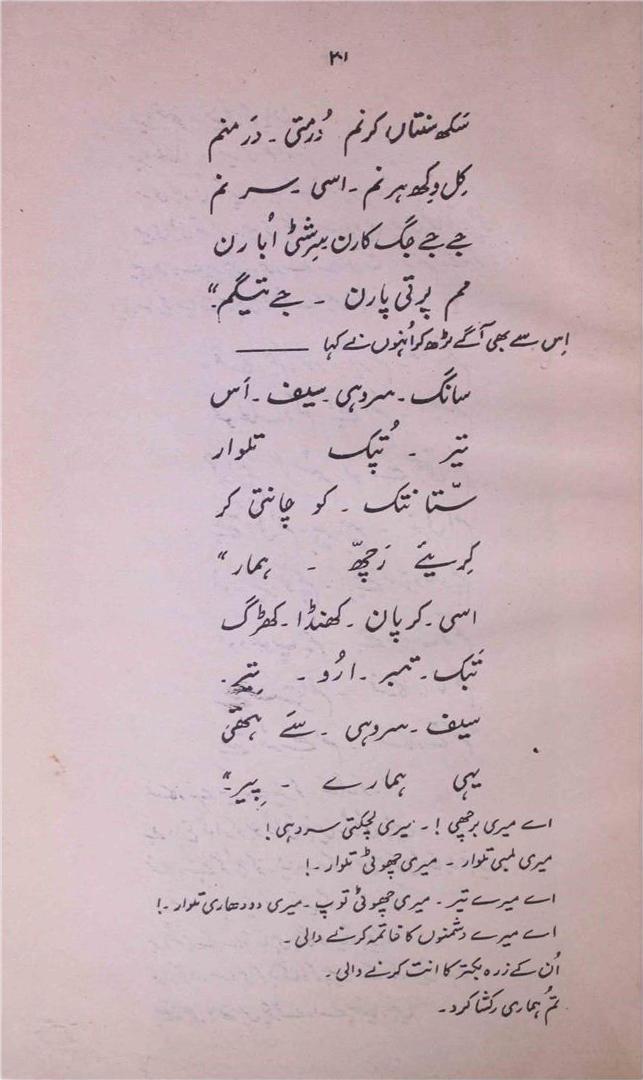 ۳۱
سَکھ سنتاں کرنم دُرمتی ۔ دَر منم
کِل وِکھ ہرنم ۔ اسی ۔ سرنم
جے جے جگ کارن سِرشٹی اُبارن
مم پرتی پارن ۔ جے تیگم۔"
اِس سے بھی آگے بڑھ کر اُنہوں نے کہا ـــــــــ
سانگ ۔ سروہی ۔ سیف ۔ اَس
تیر ۔ تُپک تلوار
ستّانتک ۔ کو چانتی کر
کریئے رَچھّ ۔ ہمار "
اسی ۔ کرپان ۔ کھنڈا ۔ کھڑگ
تَبک ۔ تبر ۔ ارُو ۔ تیر ۔
سیف ۔ سروہی ۔ سَے ہتھّی
یہی ہمارے ۔ پِیر۔"
اے میری برچھی ! ۔ میری لچکتی سروہی !
میری لمبی تلوار ۔ میری چھوٹی تلوار ۔ !
اے میرے تیر ۔ میری چھوٹی توپ ۔ میری دو دھاری تلوار ۔ !
اے میرے دشمنوں کا خاتمہ کرنے والی ۔
اُن کے زرہ بکتر کا انت کرنے والی ۔
تُم ہماری رکشا کرو ۔